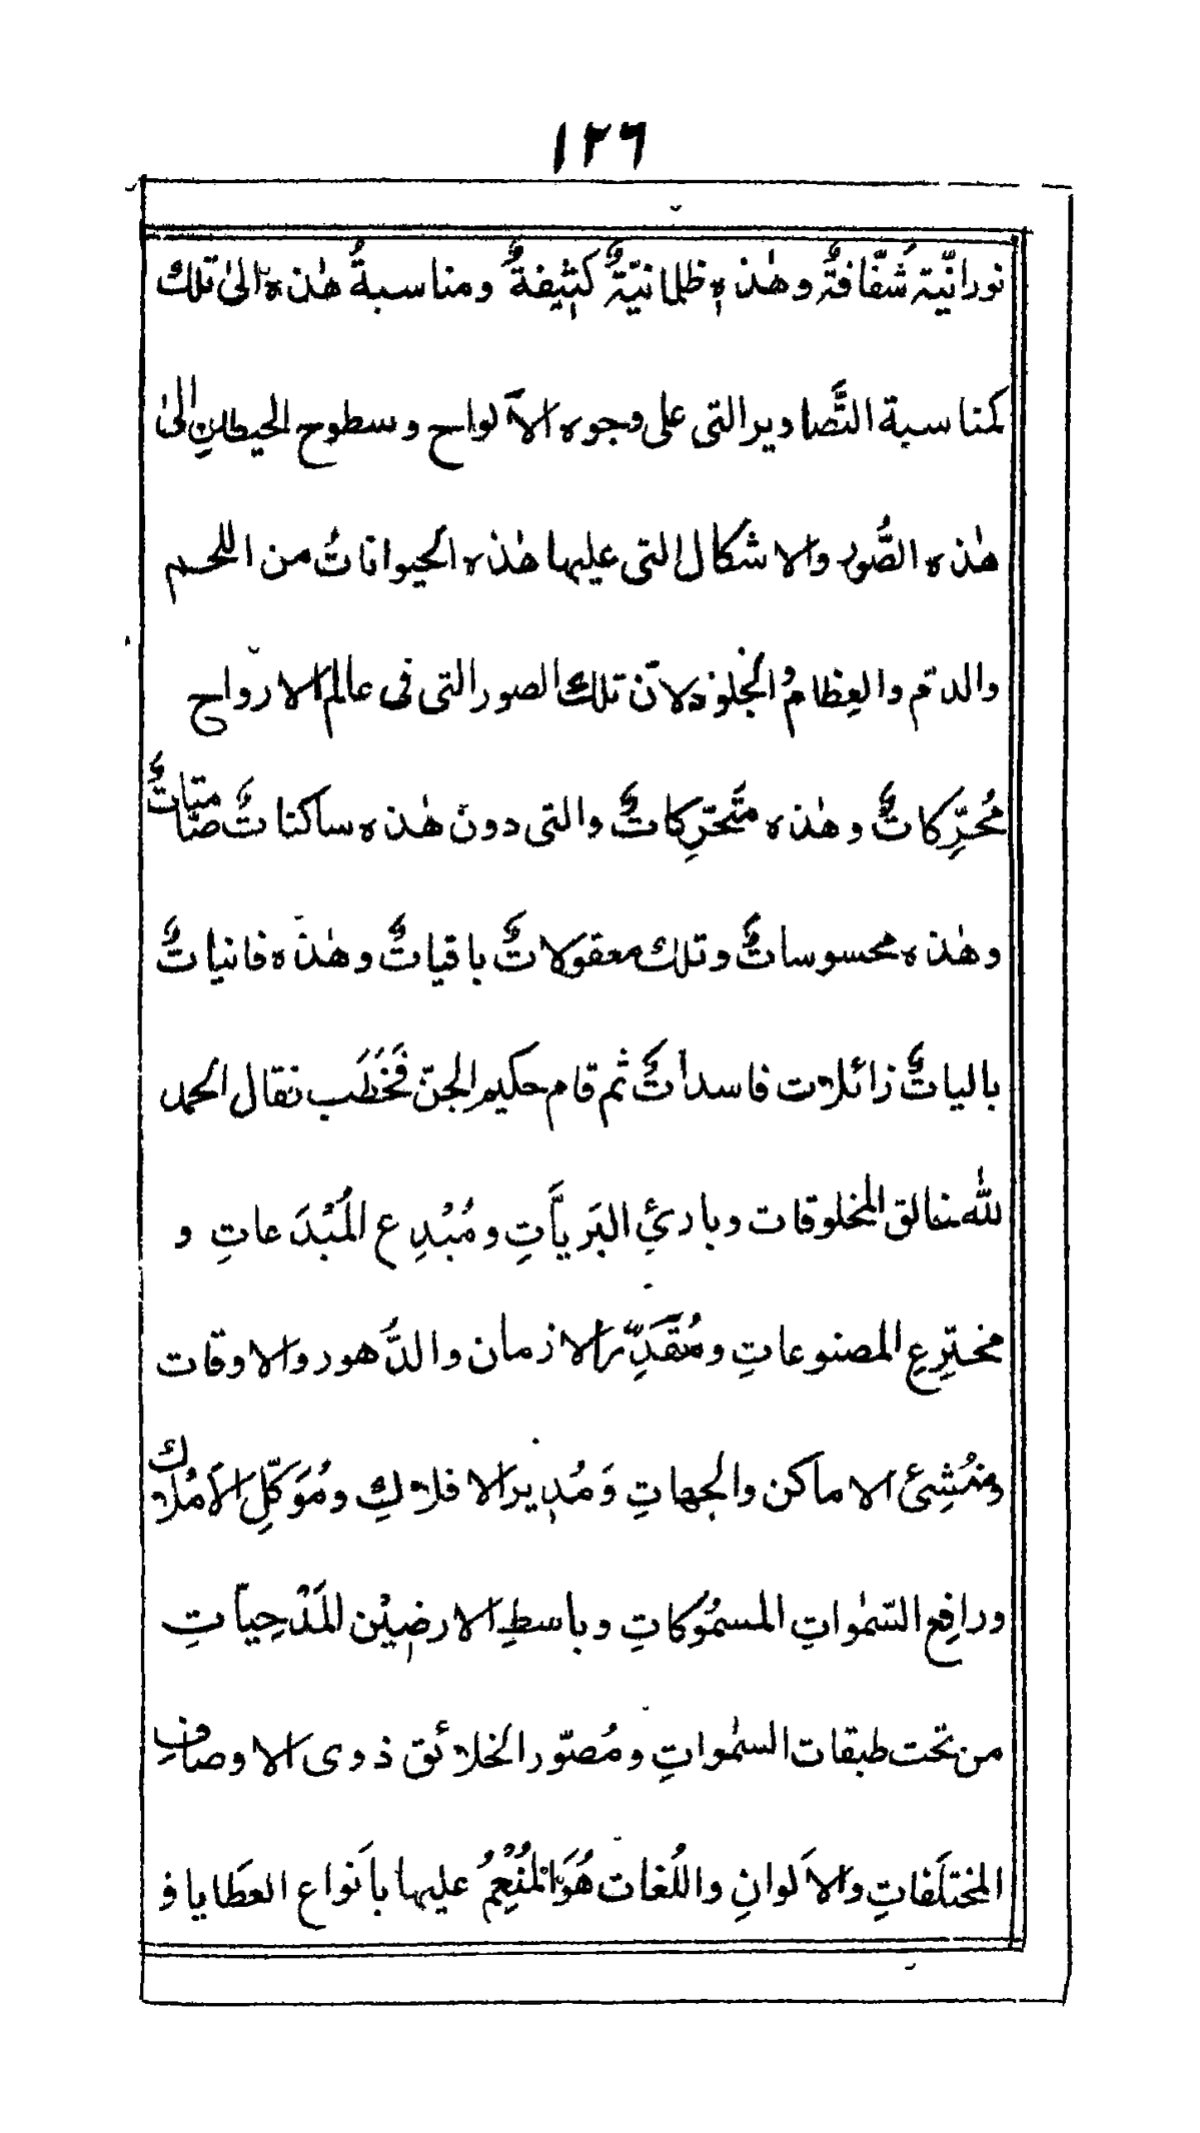 ١٢٦
نورانيّة شَفّافةٌ وهٰذه ظلمانيّةٌ كثيفةٌ ومناسبةُ هٰذه الىٰ تلك
كمناسبة التَّصاوير التى على وجوه الاَلواح وسطوح الحيطانِ الىٰ
هٰذه الصُّور والاشكال التى عليها هٰذه الحيواناتُ من اللحم
والدم والعِظام والجلود لانّ تلك الصور التى فى عالم الارواح
مُحرِّكاتٌ وهٰذه متَحرّكاتٌ والتى دون هٰذه ساكناتٌ صامتاتٌ
وهٰذه محسوساتٌ وتلك معقولاتٌ باقياتٌ وهٰذه فانياتٌ
بالياتٌ زائلات فاسداتٌ ثم قام حكيم الجنّ فَخَطَب نقال الحمد
لله خالق المخلوقات وبارئِ البَريَّاتِ ومُبْدِع المُبْدَعاتِ و
مخترِعِ المصنوعاتِ ومُقَدِّر الازمان والدُّهور والاوقات
ومُنْشِئ الاماكن والجهاتِ وَمُدير الافلاكِ ومُوَكّلِ الاَملاك
ورافِع السّمٰواتِ المسمُوكاتِ وباسطِ الارضِيْن المَدْحِياّتِ
من تحت طبقات السمٰواتِ ومُصوّر الخلائق ذوى الاوصافِ
المختلَفاتِ والاَلوانِ واللُغات هُوَ المُنْعِمُ عليها باَنواع العطَايا و